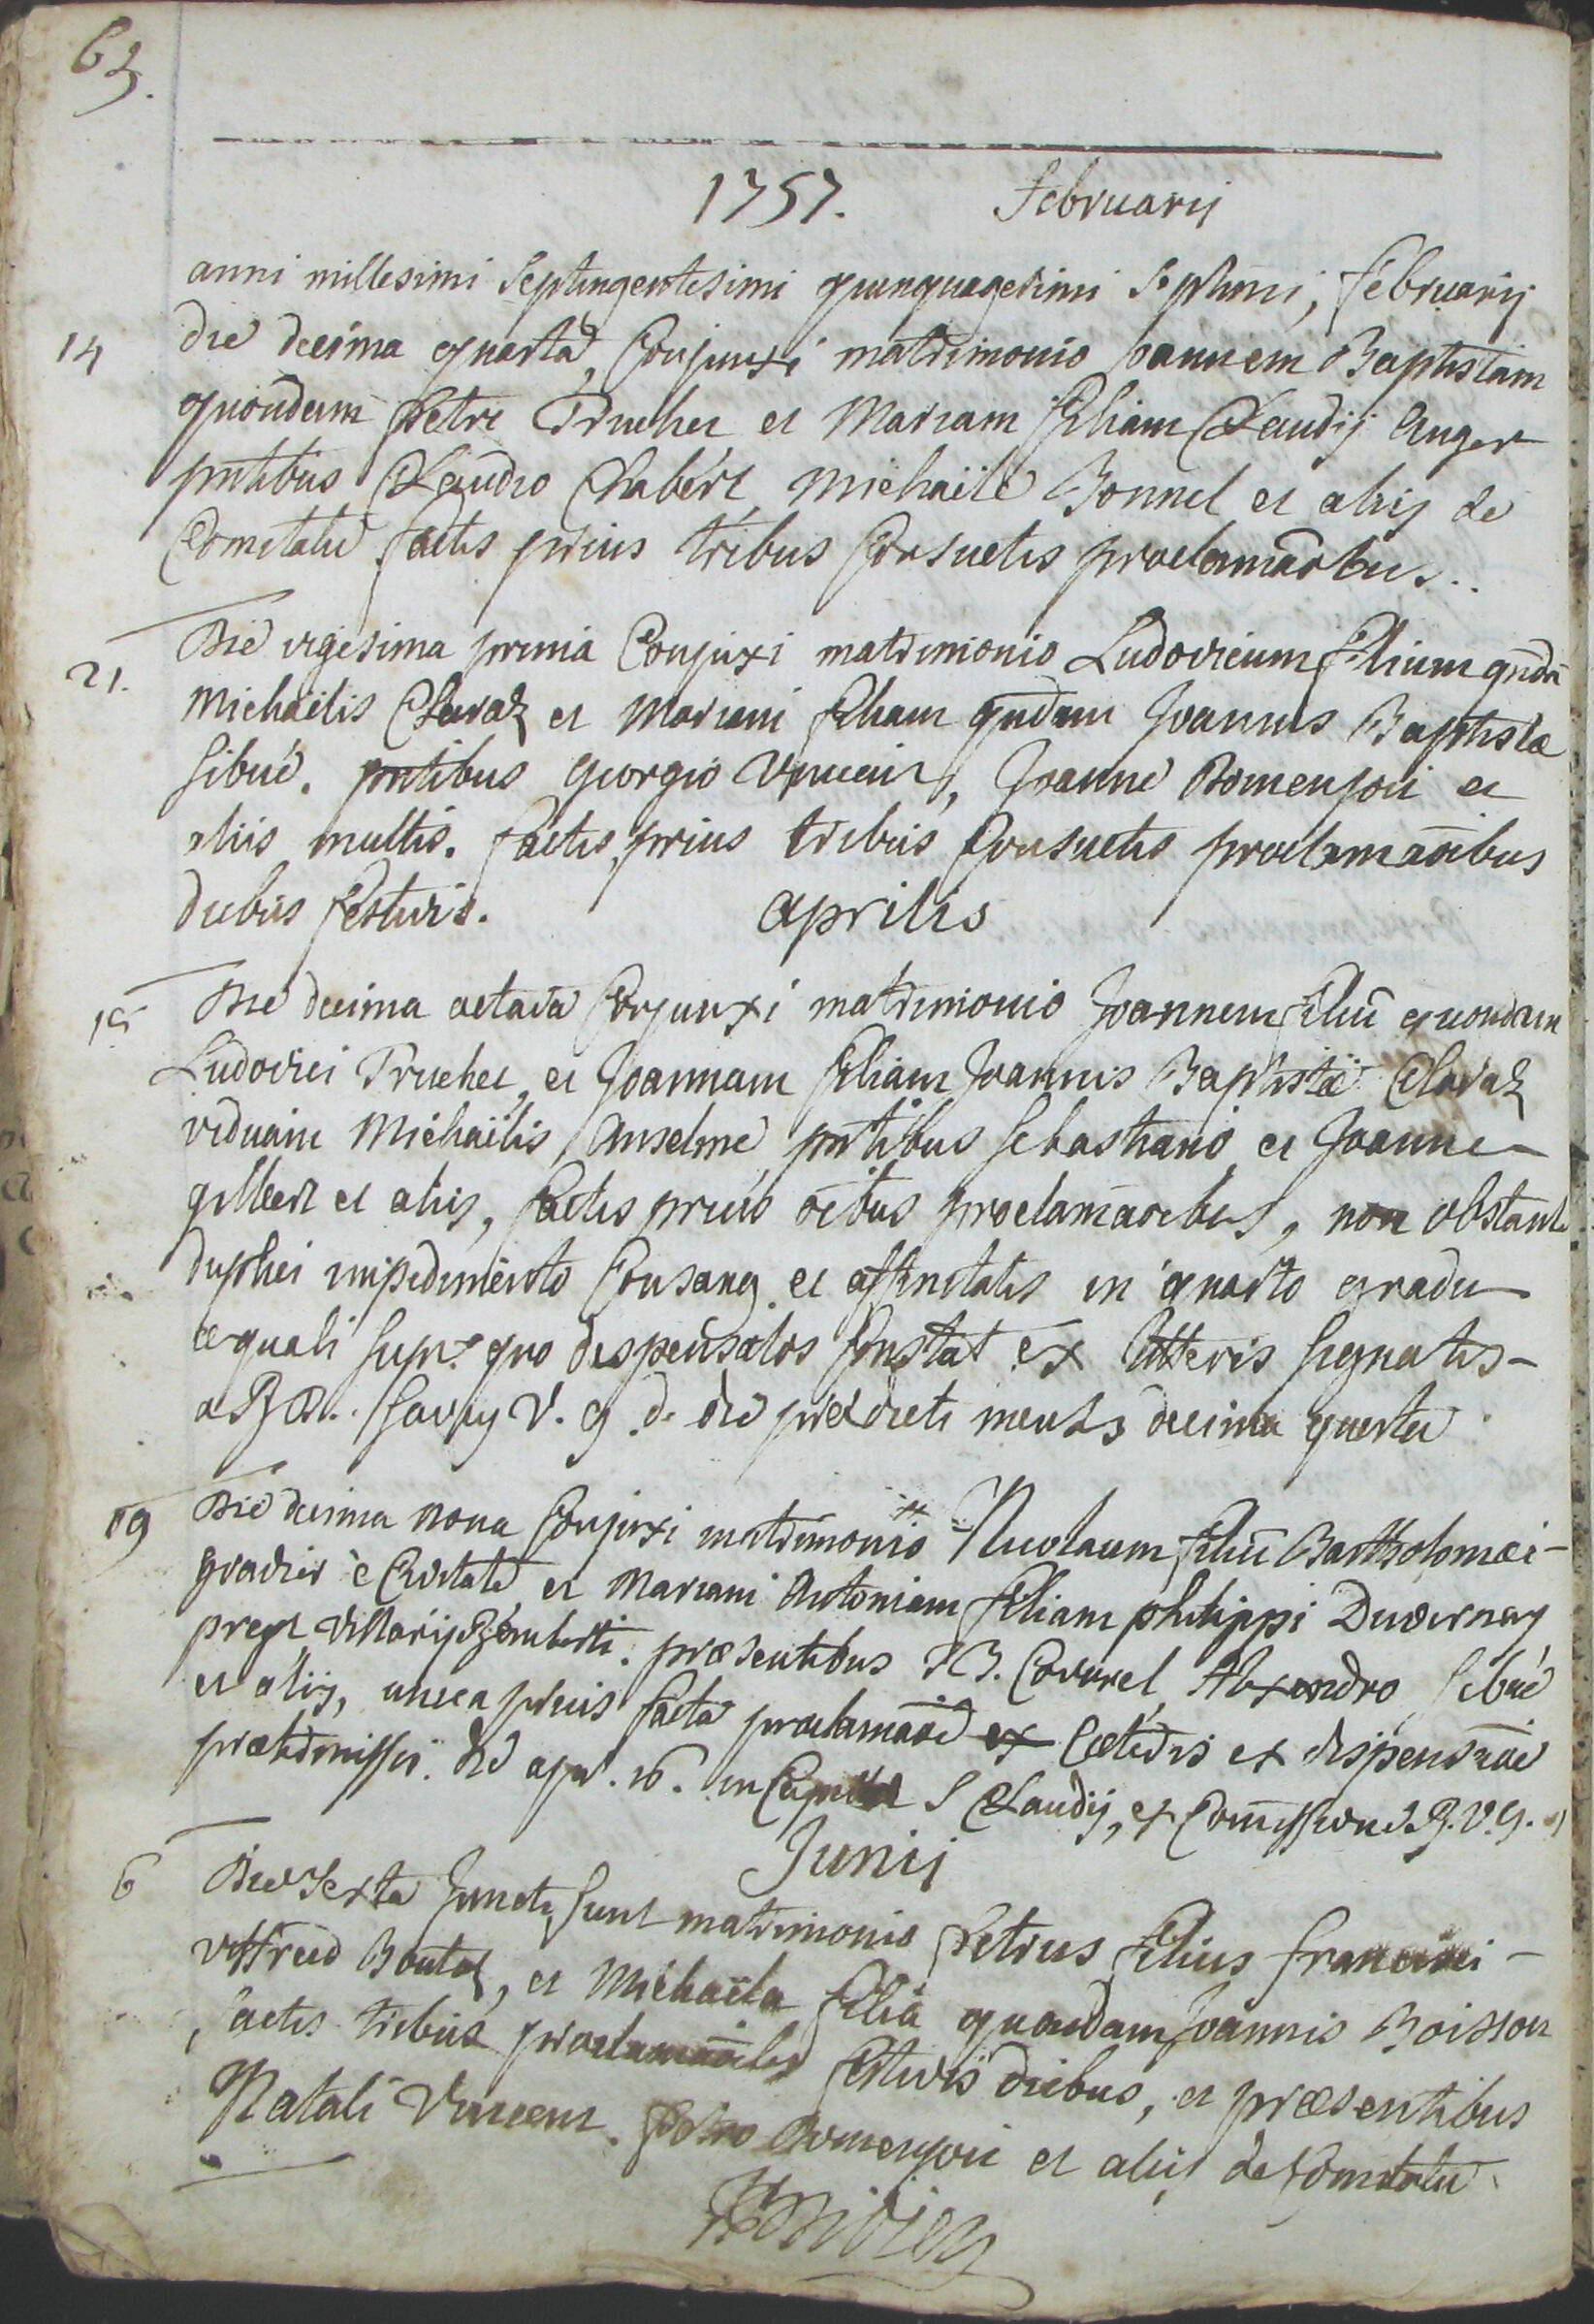 63.
1757. Februarij
anni millesimi septingentesimi quinquagesimi septimi, februarij
14 die decima quarta, Conjunxi matrimonio Joannem Baptistam
quondam Petri Truchet et Mariam filiam Claudij Anger
pntibus Claudio Chabert, Michaële Bonnel et alijs de
Comitatu factis prius tribus Consuetis proclamaõbus..
21. Die vigesima prima Conjuxi matrimonio Ludovicum filium qnda
Michaëlis Claraz et Mariam filiam qndam Joannis Baptistæ
Sibué. pntibus Georgio Vincent, Joanne Domenjon et
aliis multis. factis prius tribus Consuetis proclamaõibus
diebus festivis. Aprilis
18 Die decima octava Conjunxi matrimonio Joannem filiũ quondam
Ludovici Truchet, et Joannam filiam Joannis Baptistæ Claraz
viduam Michaëlis Anselme pntibus Sebastiano et Joanne
gilbert et alijs, factis prius oĩbus proclamaõibus, non obstante
duplici impedimento Consang. et affinitatis in quarto gradu
æquali supr. quo dispensatos Constat ex litteris signatis
a R D. Savey V. g. d. die prædicti mensis decima quarta
19 Die decima nona Conjuxi matrimonio Nicolaum filiũ Bartholomæi
gravier è Civitate et Mariam Antoniam filiam philippi Duvernay
præsentibus J B. Covarel Alexandro Sibué
et alijs, unica prius facta proclamaõe ex Cæteris ex dispensaõe
prætermissis. die apr. 16. in S Claudij, ex Comissione R. V. G.
Junij
6 Die Sexta Juncti sunt matrimonio Petrus filius francisci
Vittfred Boutaz, et Michaëla filia quondam Joannis Boisson
factis tribus proclamaõibus festivis diebus, et præsentibus
Natali Vincent. Petro Domenjon et alijs de Comitatu